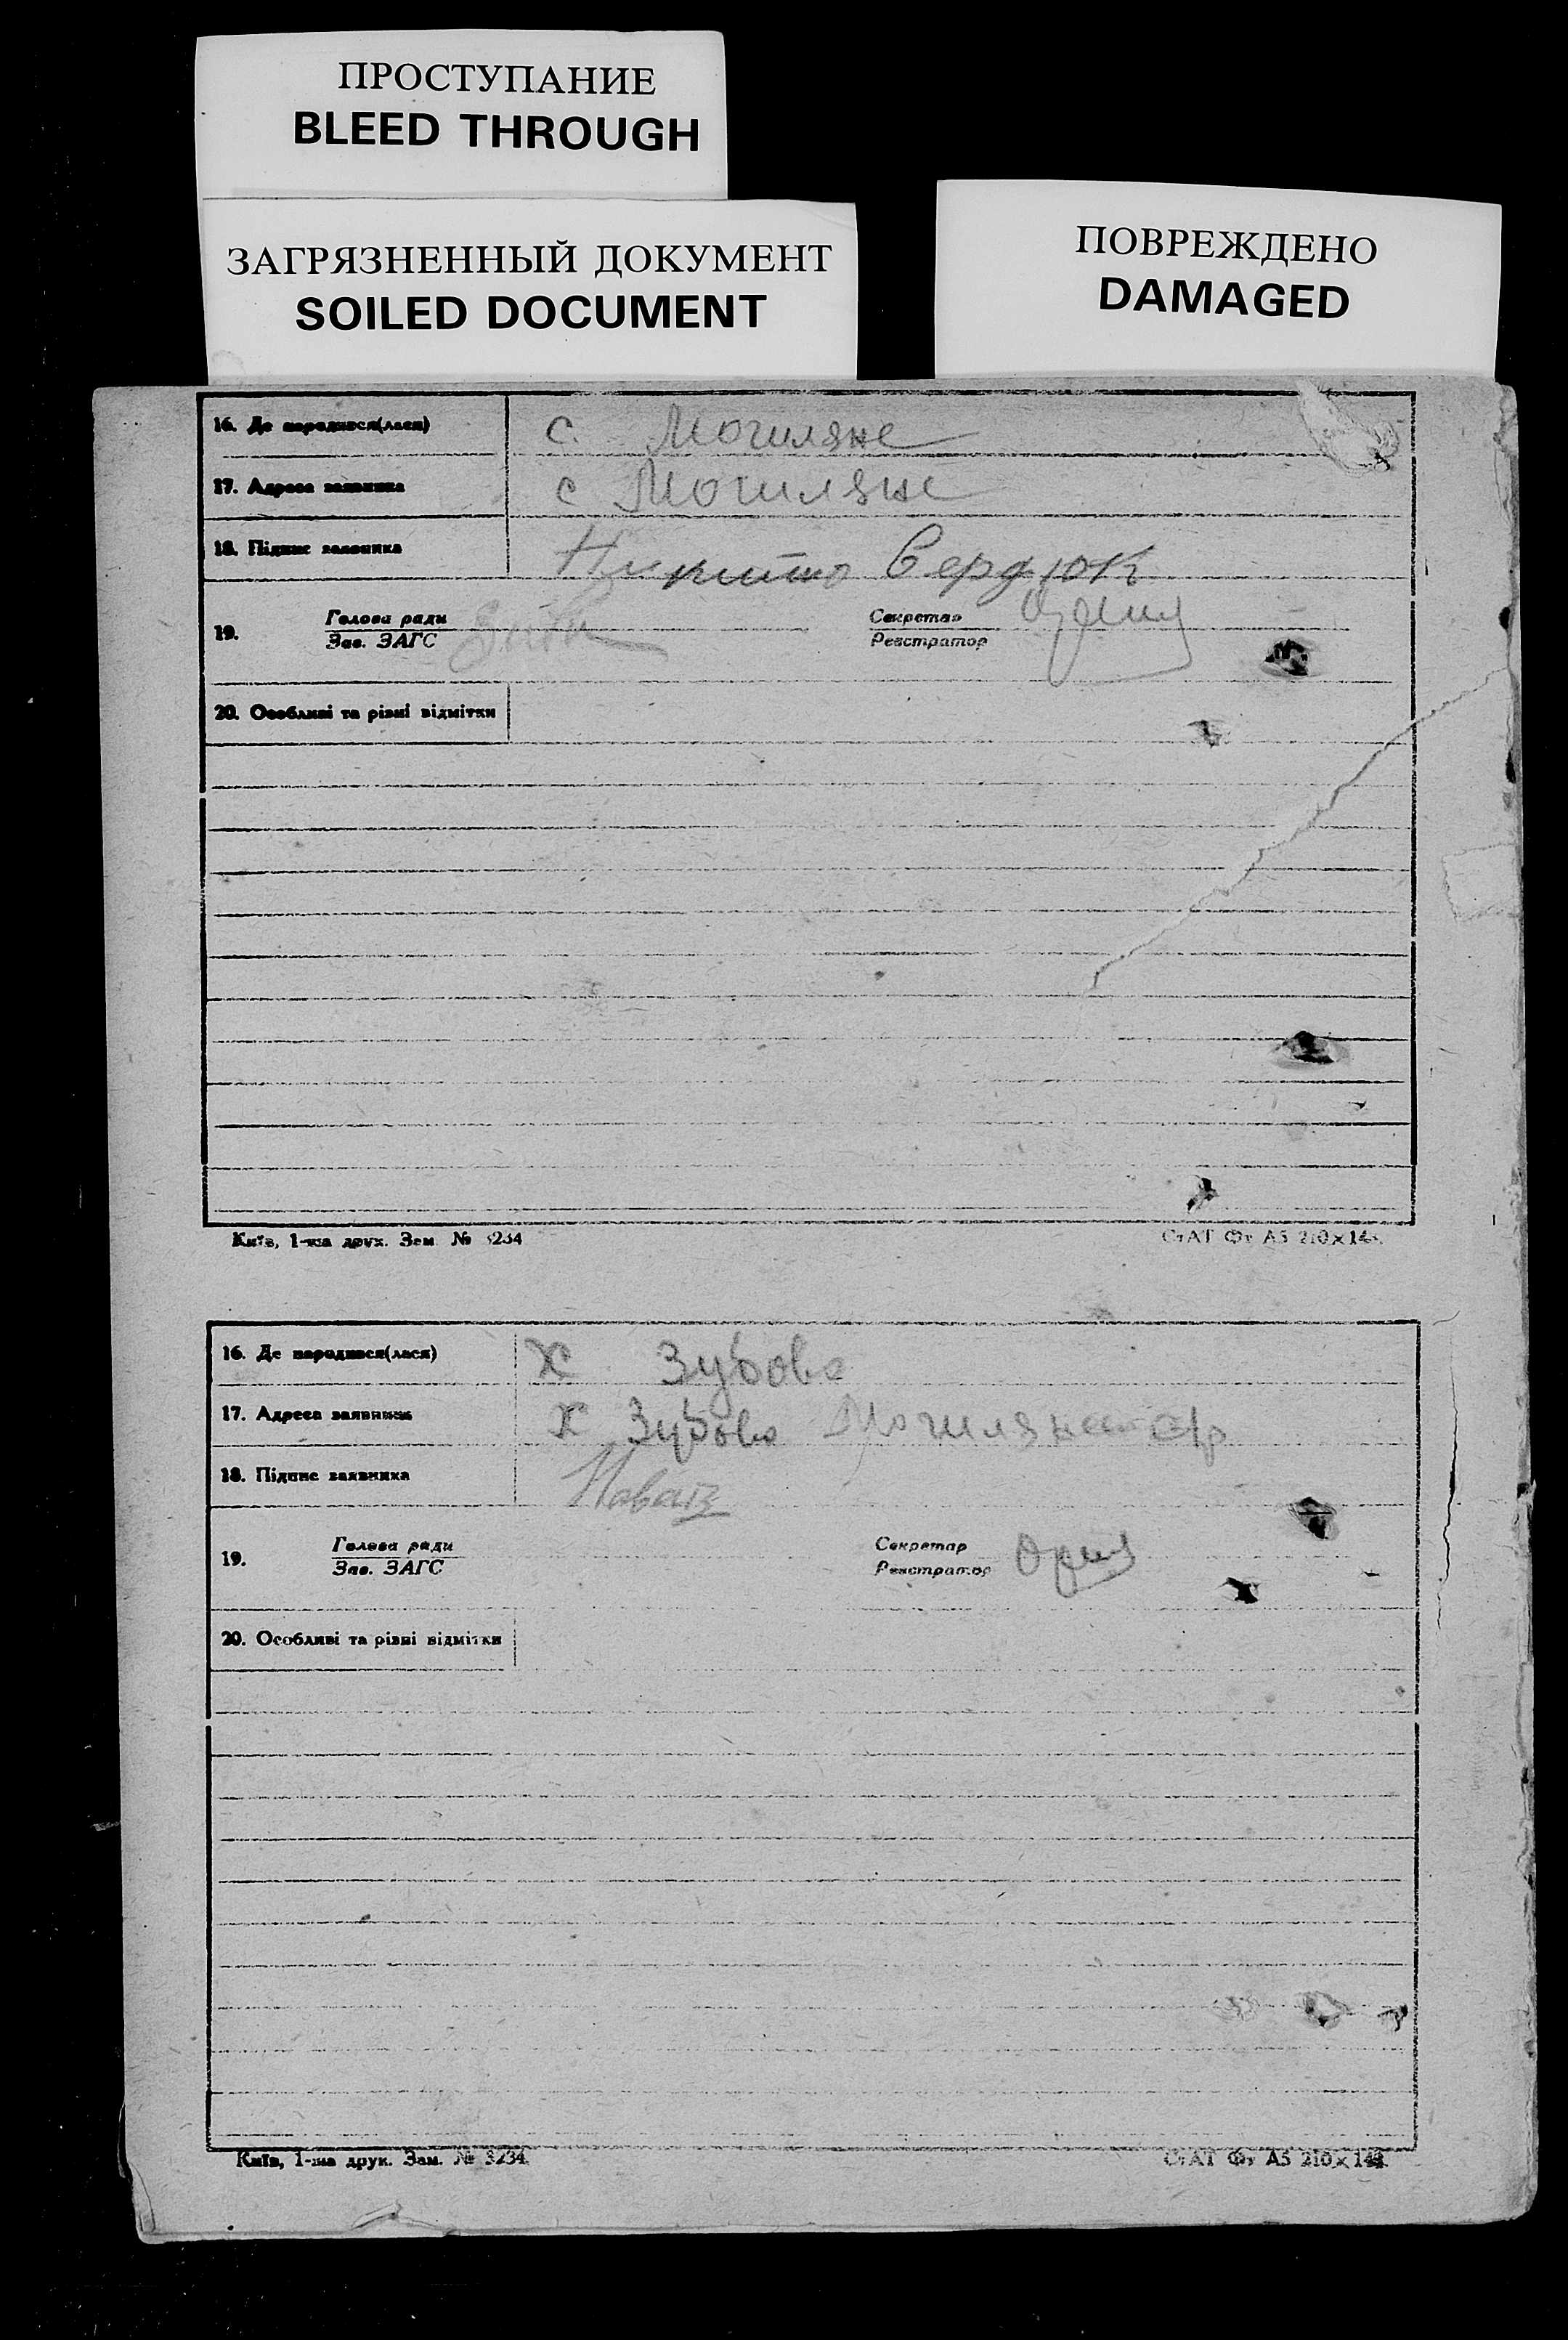 ПРОСТУПАНИЕ
BLEED THROUGH
ЗАГРЯЗНЕННЫЙ ДОКУМЕНТ
SOILED DOCUMENT
ПОВРЕЖДЕНО
DAMAGED
16. Де народився(лася) с. Могиляне
17. Адреса заявника с Могиляне
18. Підпис заявника Сердюк
19. Голова ради Секретар
Зав. ЗАГС Реєстратор
20. Особливі та різні відмітки
Київ, 1-ша друк. Зам. № 3234 СтАТ Фт А5 210×148
16. Де народився(лася) х Зубово
17. Адреса заявника х Зубово
18. Підпис заявника
19. Голова ради Секретар
Зав. ЗАГС Реєстратор
20. Особливі та різні відмітки
Київ, 1-ша друк. Зам. № 3234 СтАТ Фт А5 210×148